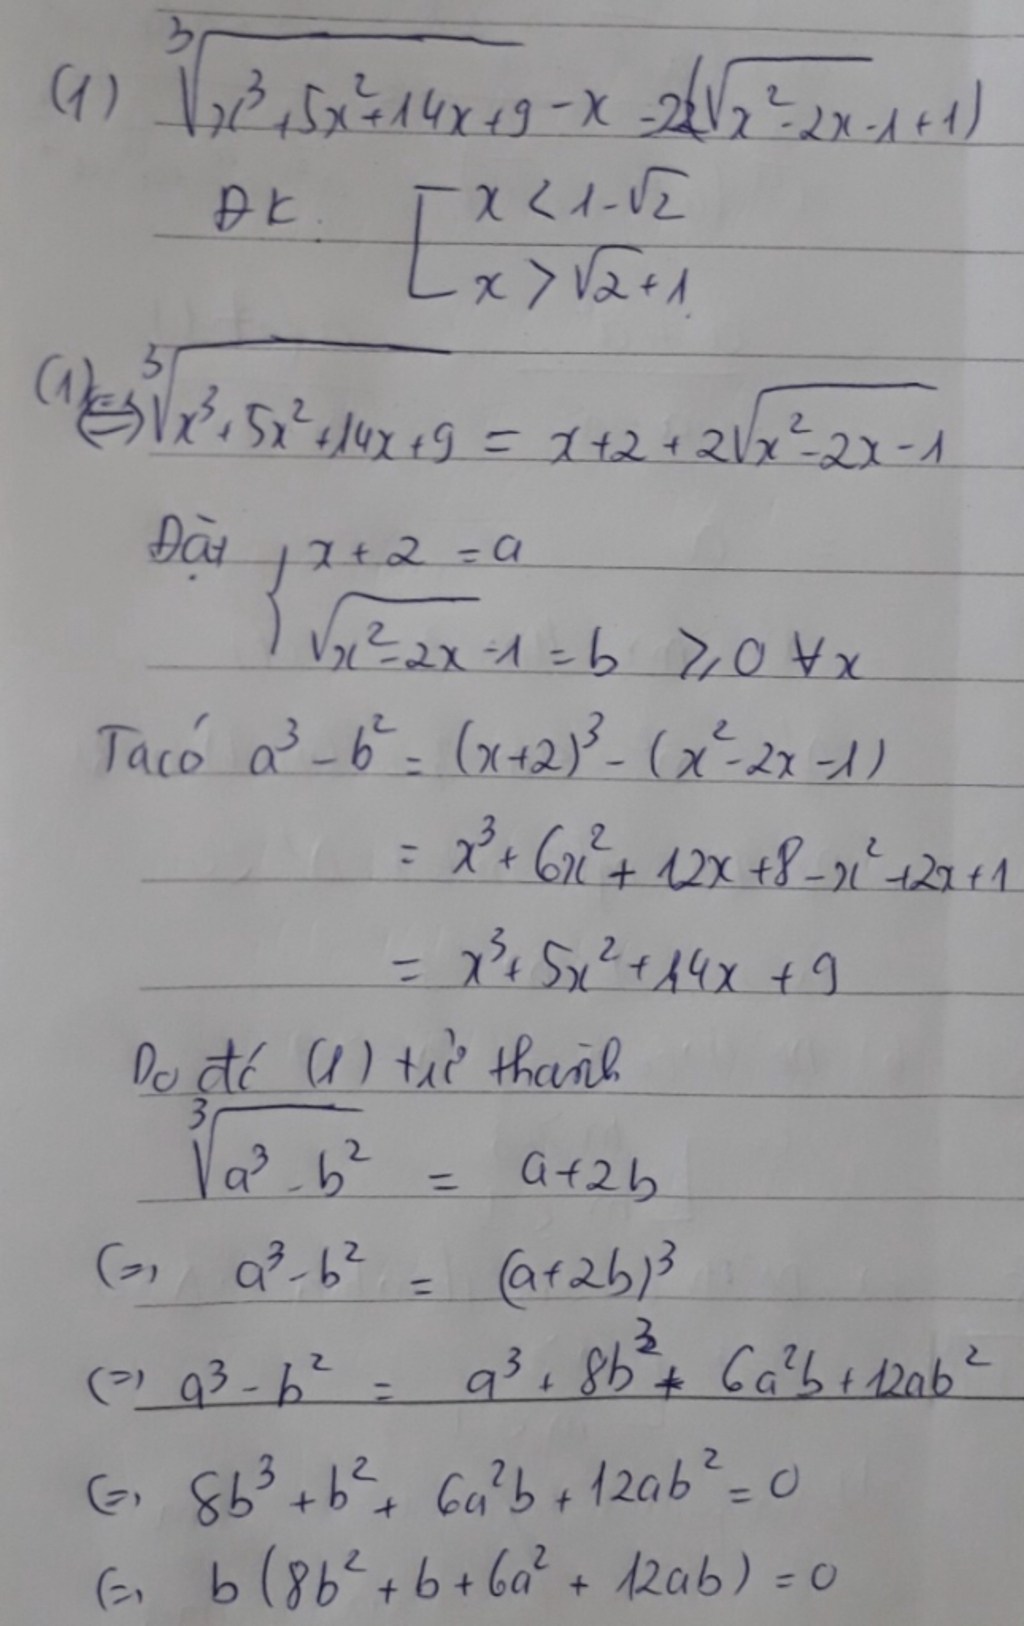 (1) ∛(x³+5x²+14x+9) - x = 2(√(x²-2x-1)+1)
ĐK. [ x < 1-√2
x > √2+1.
(1) ⇔ ∛(x³+5x²+14x+9) = x+2+2√(x²-2x-1)
Đặt { x+2 = a
√(x²-2x-1) = b ⩾ 0 ∀x
Ta có a³-b² = (x+2)³ - (x²-2x-1)
= x³+6x²+12x+8-x²+2x+1
= x³+5x²+14x+9
Do đó (1) trở thành
∛(a³-b²) = a+2b
⇔ a³-b² = (a+2b)³
⇔ a³-b² = a³+8b³+6a²b+12ab²
⇔ 8b³+b²+6a²b+12ab² = 0
⇔ b(8b²+b+6a²+12ab) = 0